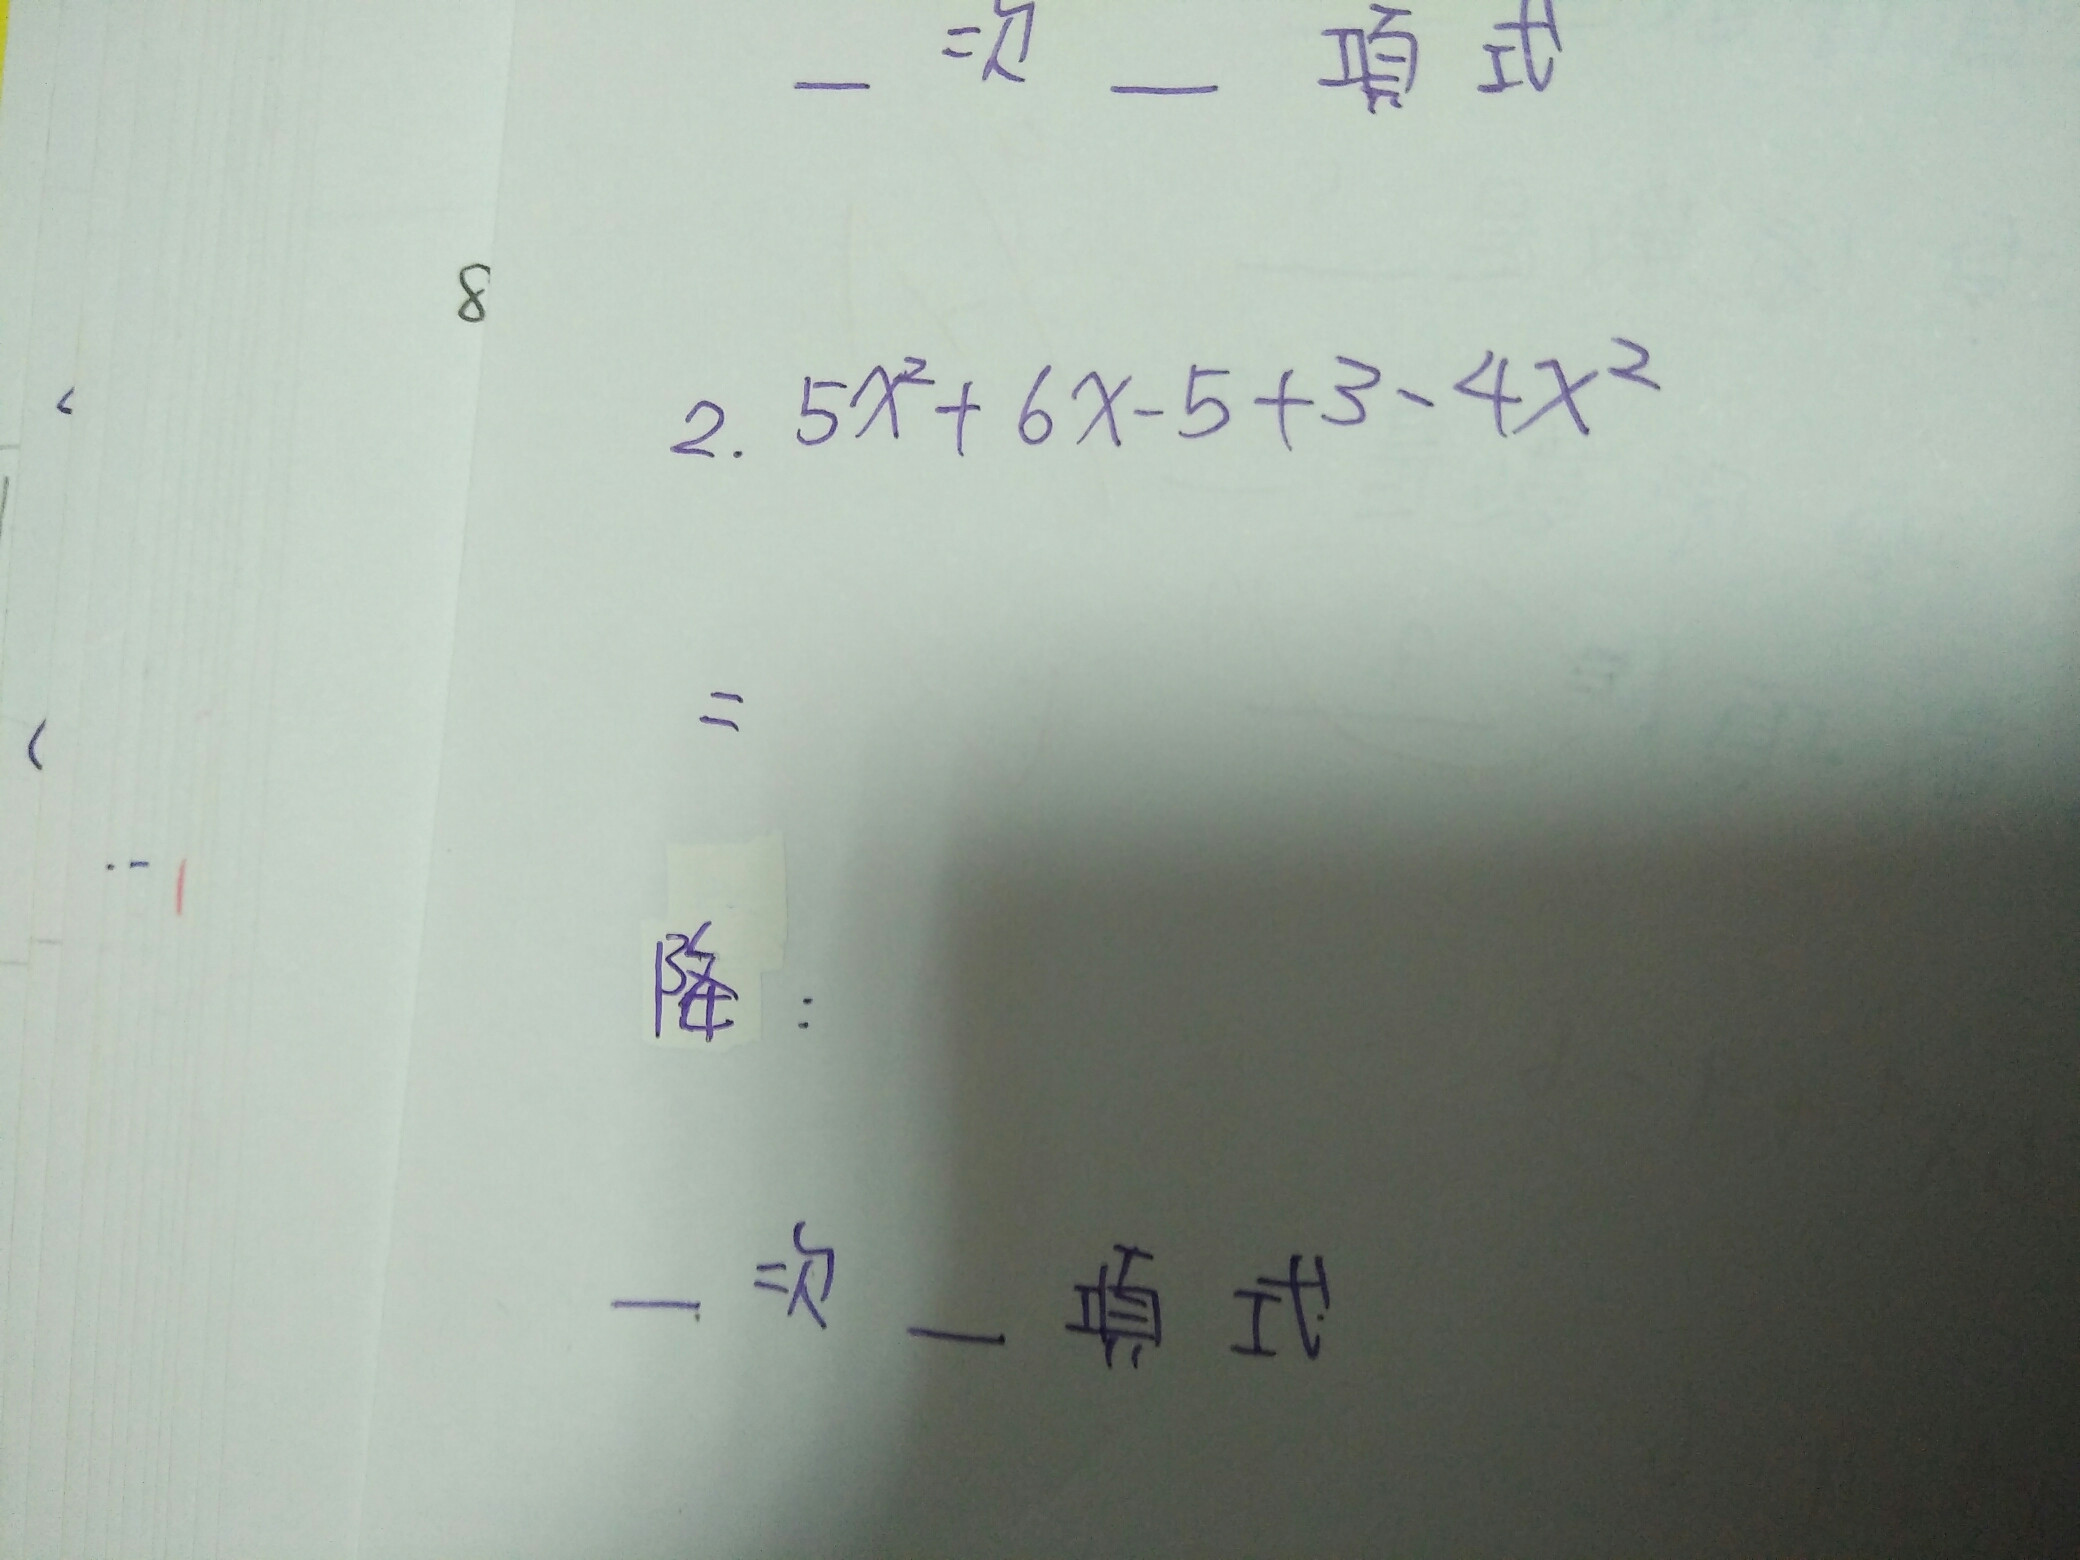 _ 次 _ 項 式
8
2. 5x²+6x-5+3-4x²
=
降:
_ 次 _ 項 式